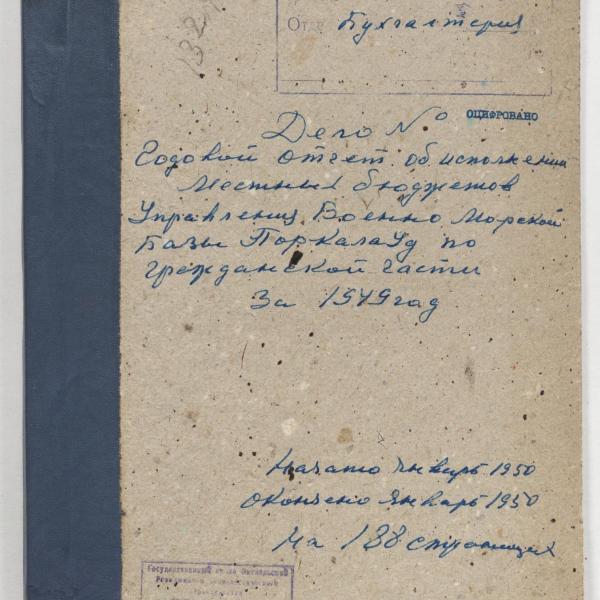 132
Отд. Бухгалтерия
ОЦИФРОВАНО
Дело №
Годовой отчет об исполнении
Местных бюджетов
Управления Военно Морской
Базы ПорккалаУд по
гражданской части
За 1949 год
Начато январь 1950
Окончено январь 1950
На 188 страницах
Государственный архив Октябрьской
Революции